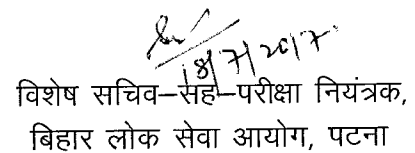 18/7/2017
विशेष सचिव–सह–परीक्षा नियंत्रक,
बिहार लोक सेवा आयोग, पटना